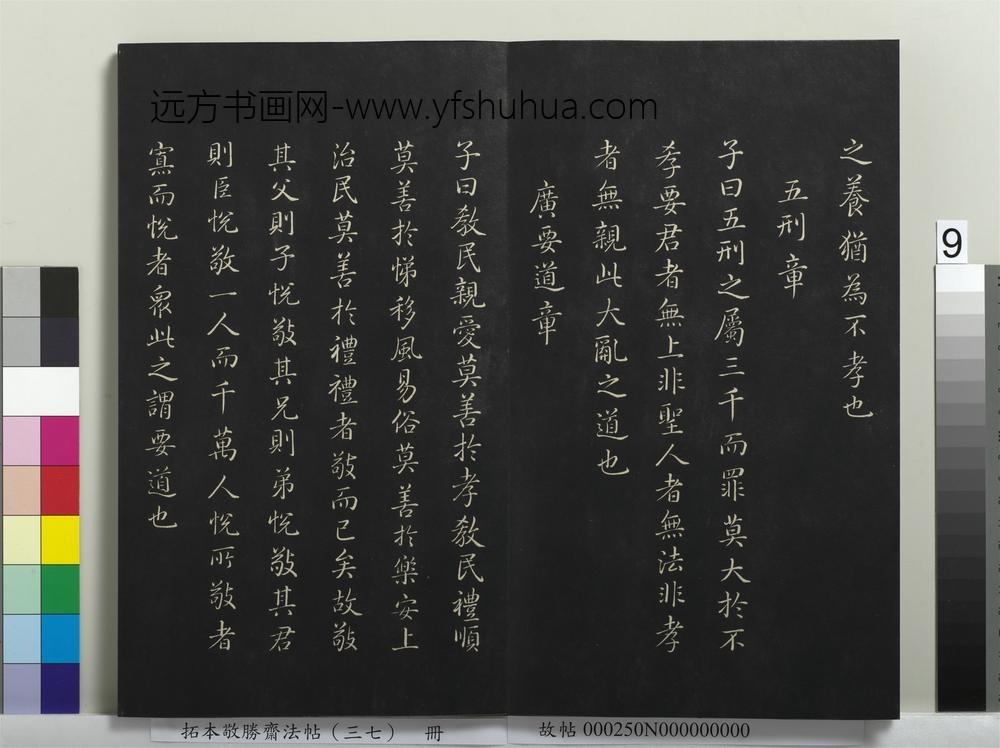 远方书画网-www.yfshuhua.com
之養猶為不孝也
五刑章
子曰五刑之屬三千而罪莫大於不
孝要君者無上非聖人者無法非孝
者無親此大亂之道也
廣要道章
子曰教民親愛莫善於孝教民禮順
莫善於悌移風易俗莫善於樂安上
治民莫善於禮禮者敬而已矣故敬
其父則子悅敬其兄則弟悅敬其君
則臣悅敬一人而千萬人悅所敬者
寡而悅者衆此之謂要道也
9
拓本敬勝齋法帖（三七） 冊
故帖 000250N000000000